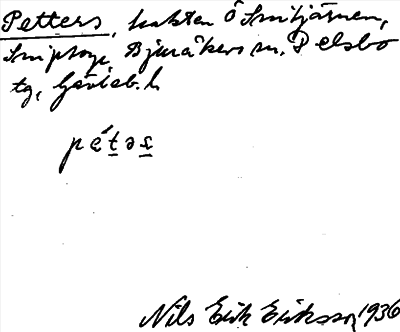 Petters, trakten Ö Snitjärnen,
Bjuråkers sn, Delsbo
tg, Gävleb. l.
pétəs
Nils Erik Eriksson 1936